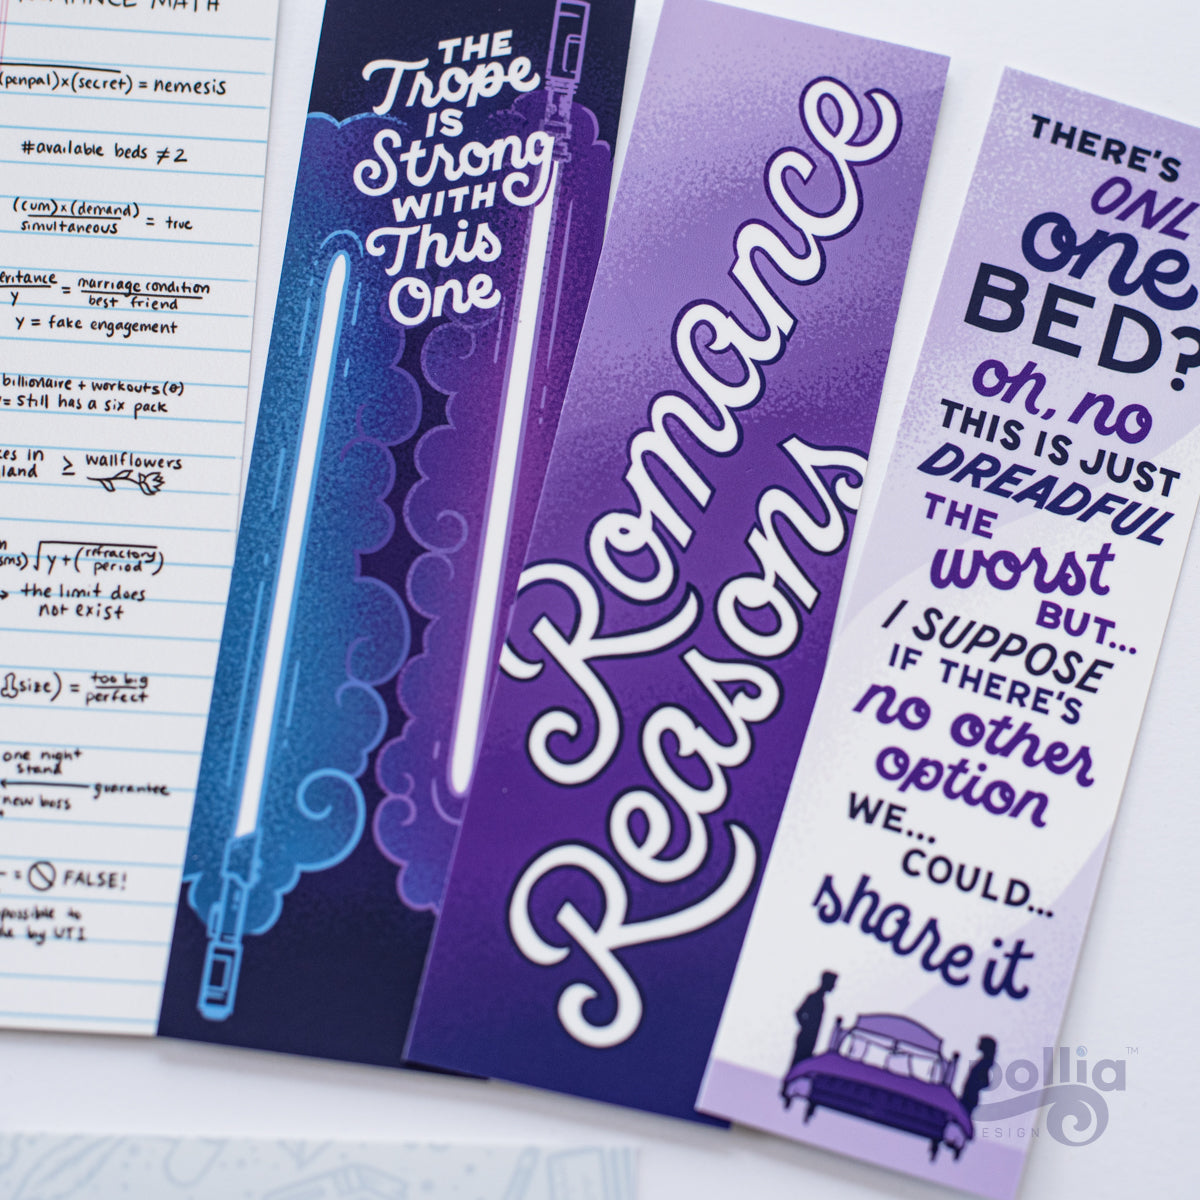 MATH
(penpal)x(secret) = nemesis
#available beds ≠ 2
(cum)x(demand)
simultaneous
= true
marriage condition
best friend
y
=
y = fake engagement
billionaire + workouts(θ)
= still has a six pack
in
land
≥ wallflowers
√y+(refractory
period)
the limit does
not exist
size) = too big
perfect
one night
stand
guarantee
new boss
= FALSE!
by UTI
THE
Trope
IS
Strong
WITH
This
One
Romance
Reasons
THERE'S
ONL
one
BED?
oh, no
THIS IS JUST
DREADFUL
THE
worst
BUT...
I SUPPOSE
IF THERE'S
no other
option
WE...
COULD...
share it
pollia™
ESIGN